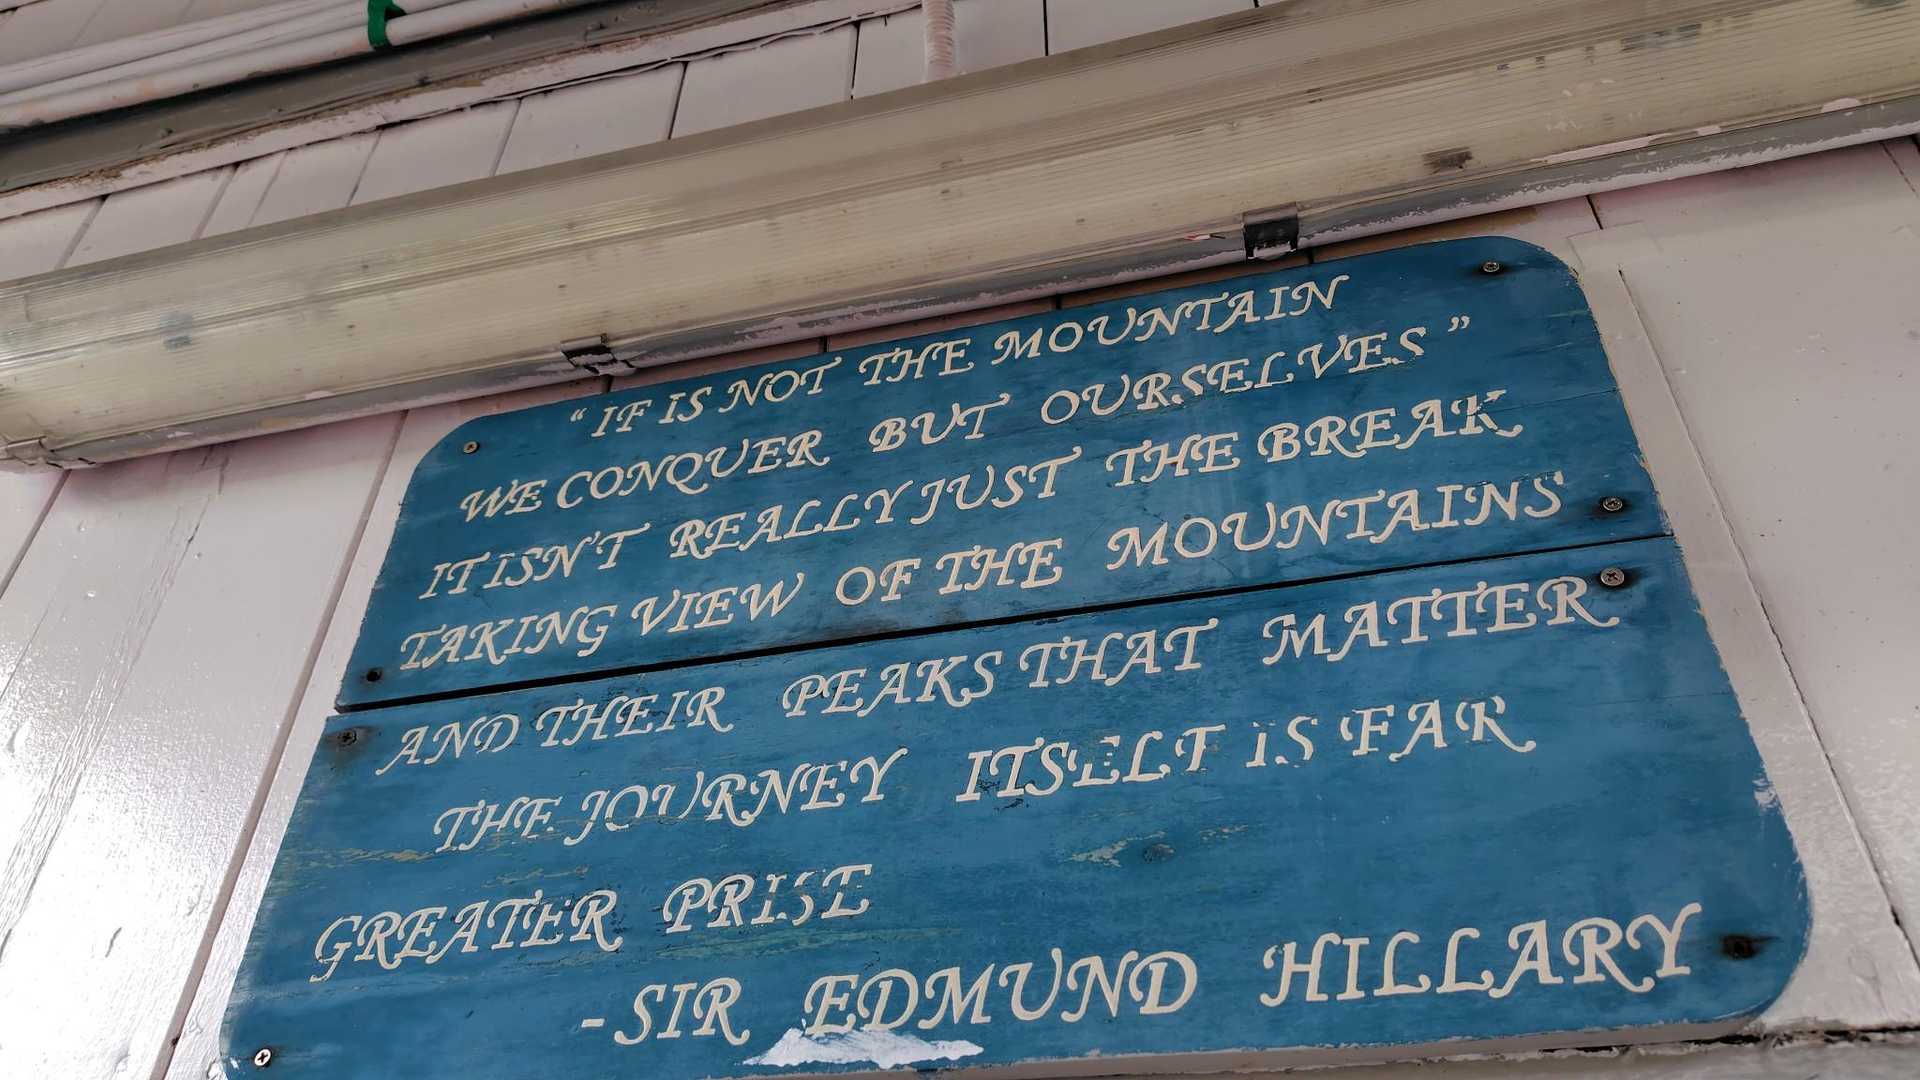 “ IF IS NOT THE MOUNTAIN
WE CONQUER BUT OURSELVES ”
IT ISN'T REALLY JUST THE BREAK
TAKING VIEW OF THE MOUNTAINS
AND THEIR PEAKS THAT MATTER
THE JOURNEY ITSELF IS FAR
GREATER PRISE
- SIR EDMUND HILLARY